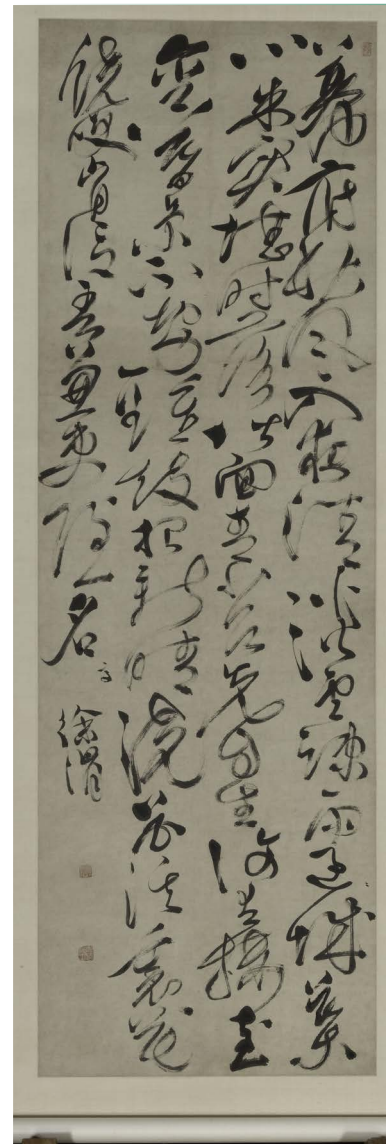 幕府秋風入夜清淡雲疎雨過城葉
心朱實堪時落階面青苔先自生復有樓臺
銜暮景不勞鐘鼓報新晴浣花溪裏花
饒咲肯信吾兼吏隱名 高 徐渭